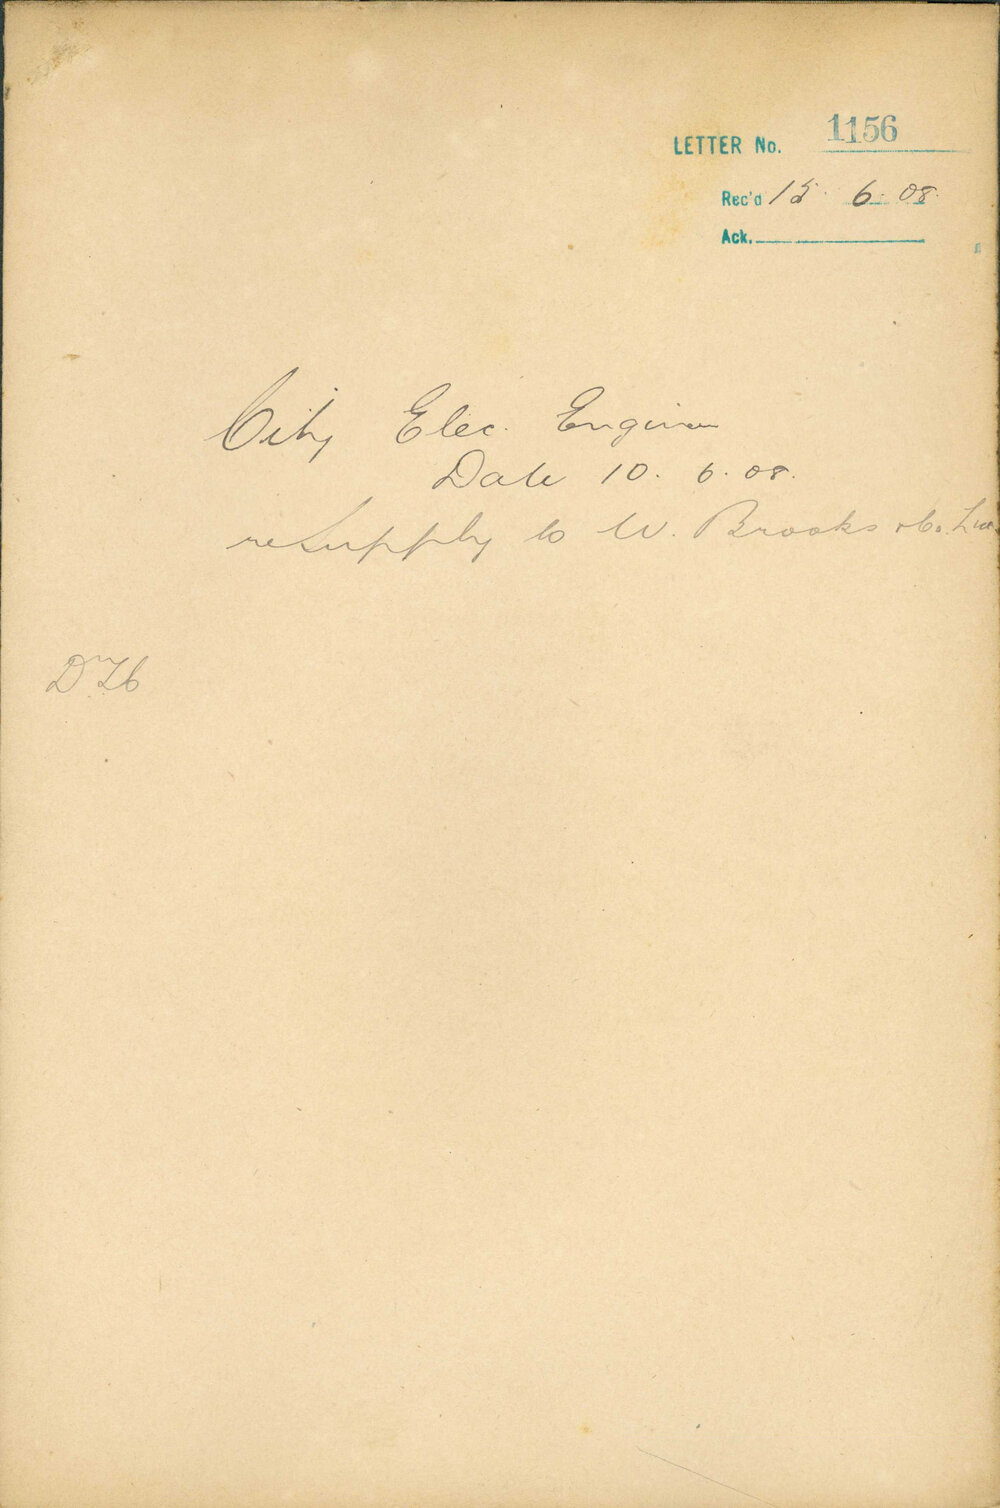 LETTER No. 1156
Rec'd 15. 6. 08.
Ack.
City Elec. Engineer
Date 10. 6. 08.
re Supply to W. Brooks & Co.